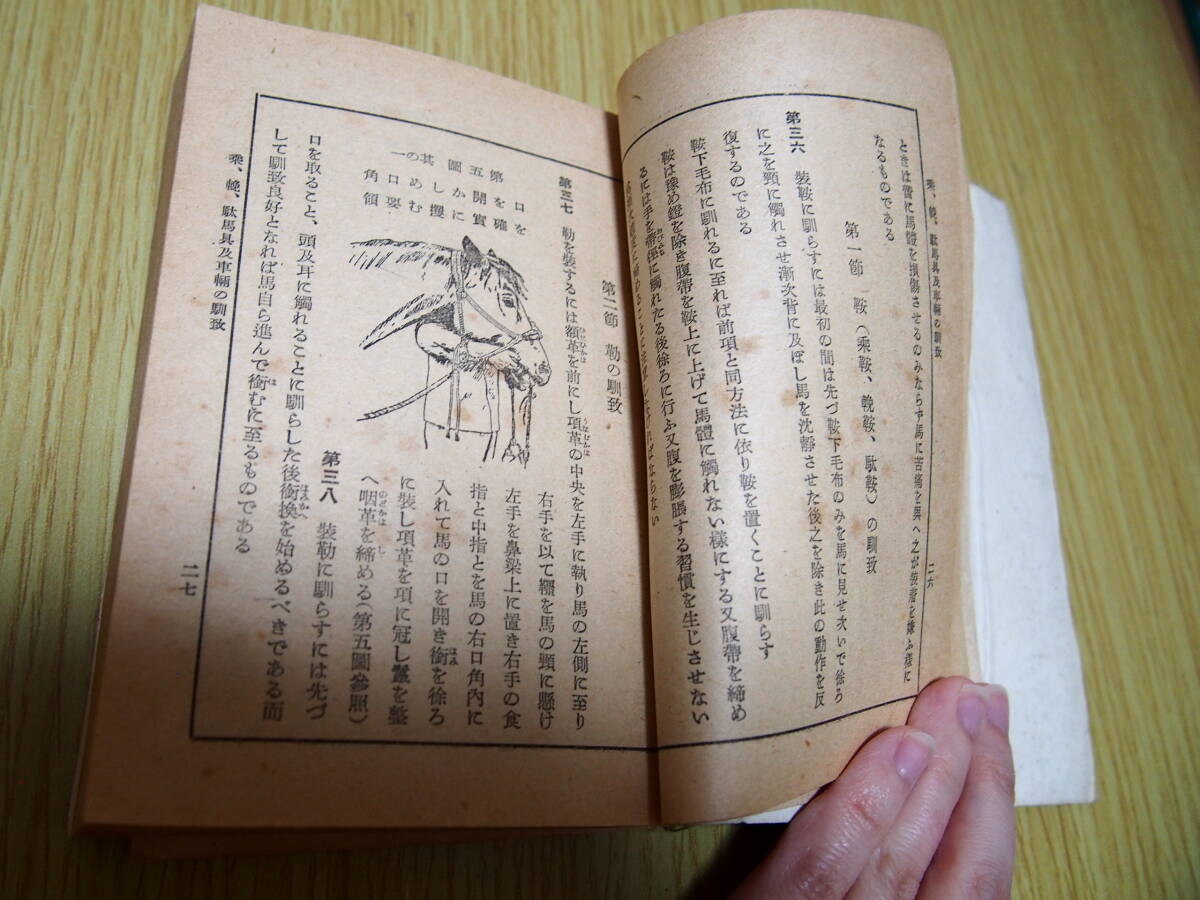 乘、輓、駄馬具及車輛の馴致
二六
ときは啻に馬體を損傷させるのみならず馬に苦痛を與へ之が裝着を嫌ふ樣に
なるものである
第一節　鞍（乘鞍、輓鞍、駄鞍）の馴致
第三六　裝鞍に馴らすには最初の間は先づ鞍下毛布のみを馬に見せ次いで徐ろ
に之を頸に觸れさせ漸次背に及ぼし馬を沈靜させた後之を除き此の動作を反
復するのである
鞍下毛布に馴れるに至れば前項と同方法に依り鞍を置くことに馴らす
鞍は豫め鐙を除き腹帶を鞍上に上げて馬體に觸れない樣にする又腹帶を締め
るには手を帶徑に觸れたる後徐ろに行ふ又腹を膨脹する習慣を生じさせない
ればならない
第二節　勒の馴致
第三七　勒を裝するには額革を前にし項革の中央を左手に執り馬の左側に至り
右手を以て韁を馬の頸に懸け
左手を鼻梁上に置き右手の食
指と中指とを馬の右口角內に
入れて馬の口を開き銜を徐ろ
に裝し項革を項に冠し鬣を整
へ咽革を締める（第五圖參照）
第五圖　其の一
口を開かしめ口角
を確實に握む要領
第三八　裝勒に馴らすには先づ
口を取ること、頭及耳に觸れることに馴らした後銜換を始ぬるべきである而
して馴致良好となれば馬自ら進んで銜むに至るものである
乘、輓、駄馬具及車輛の馴致
二七